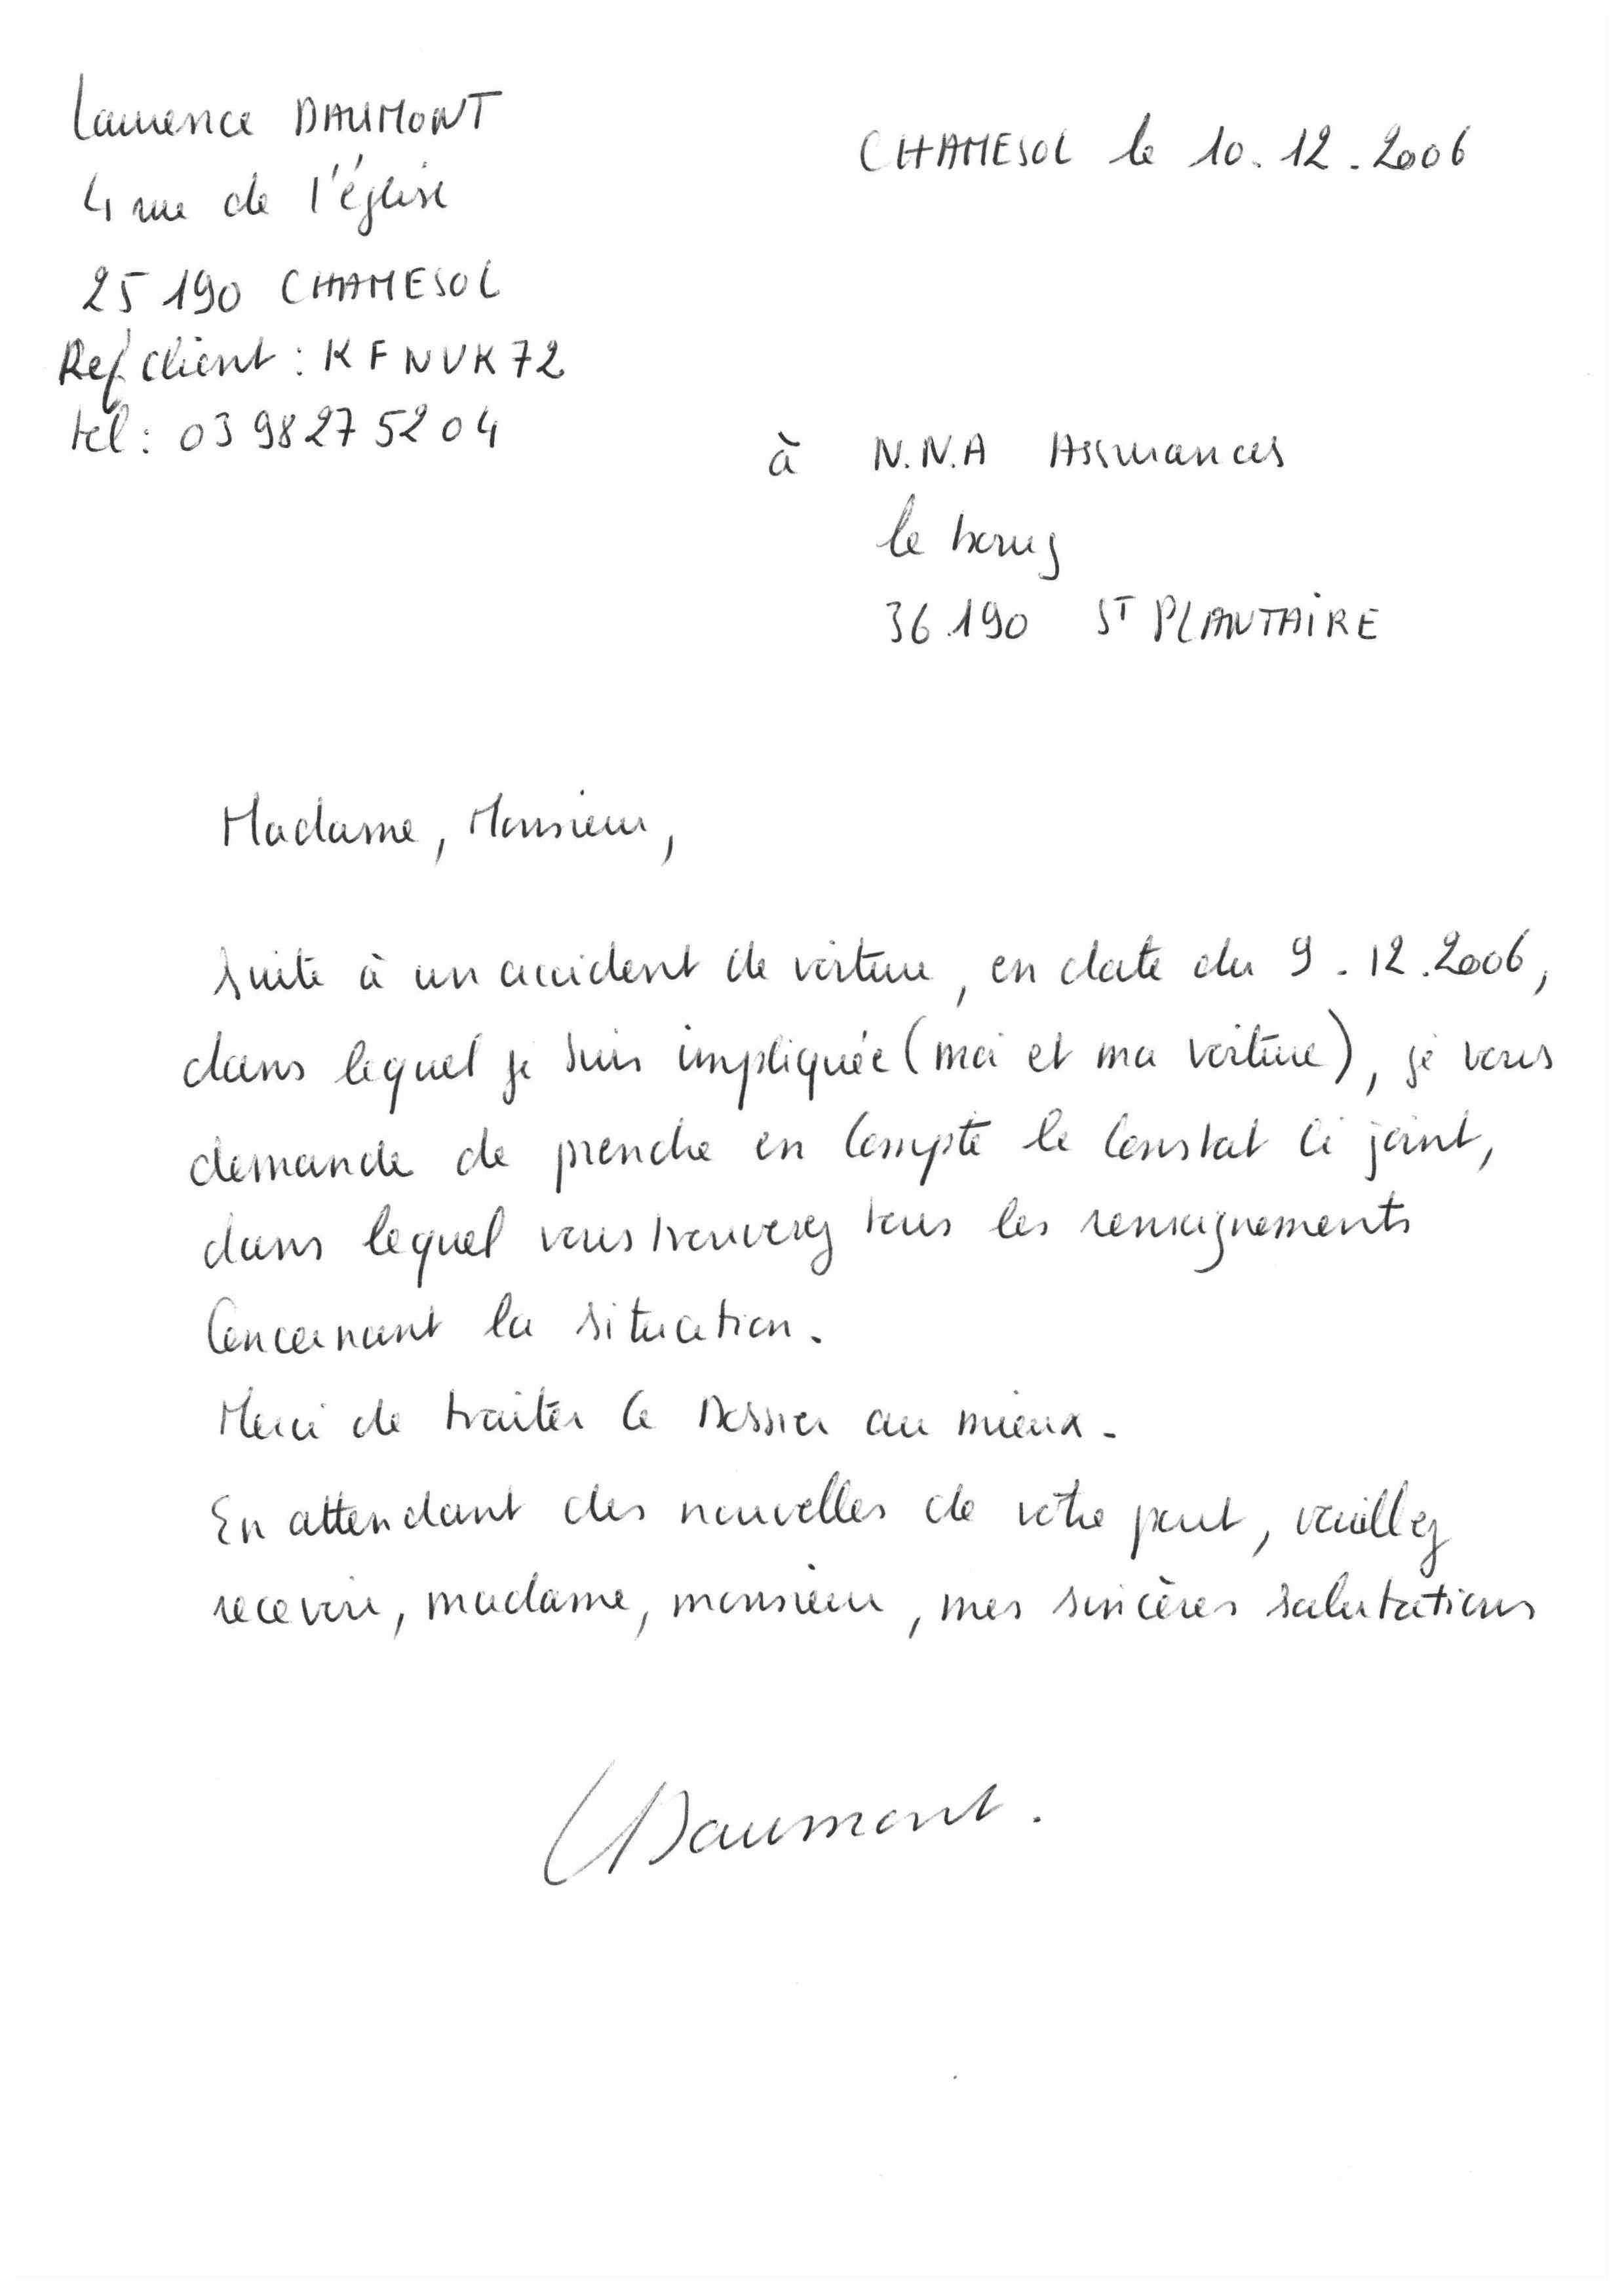 Laurence DAUMONT
4 rue de l'église
25190 CHAMESOL
Ref client : KFNVK72
tel : 03 98 27 52 04
CHAMESOL le 10.12.2006
à N.N.A Assurances
le bourg
36190 ST PLANTAIRE
Madame, Monsieur,
Suite à un accident de voiture, en date du 9.12.2006,
dans lequel je suis impliquée (moi et ma voiture), je vous
demande de prendre en compte le constat ci joint,
dans lequel vous trouverez tous les renseignements
concernant la situation.
Merci de traiter ce Dossier au mieux.
En attendant des nouvelles de votre part, veuillez
recevoir, madame, monsieur, mes sincères salutations
LDaumont.